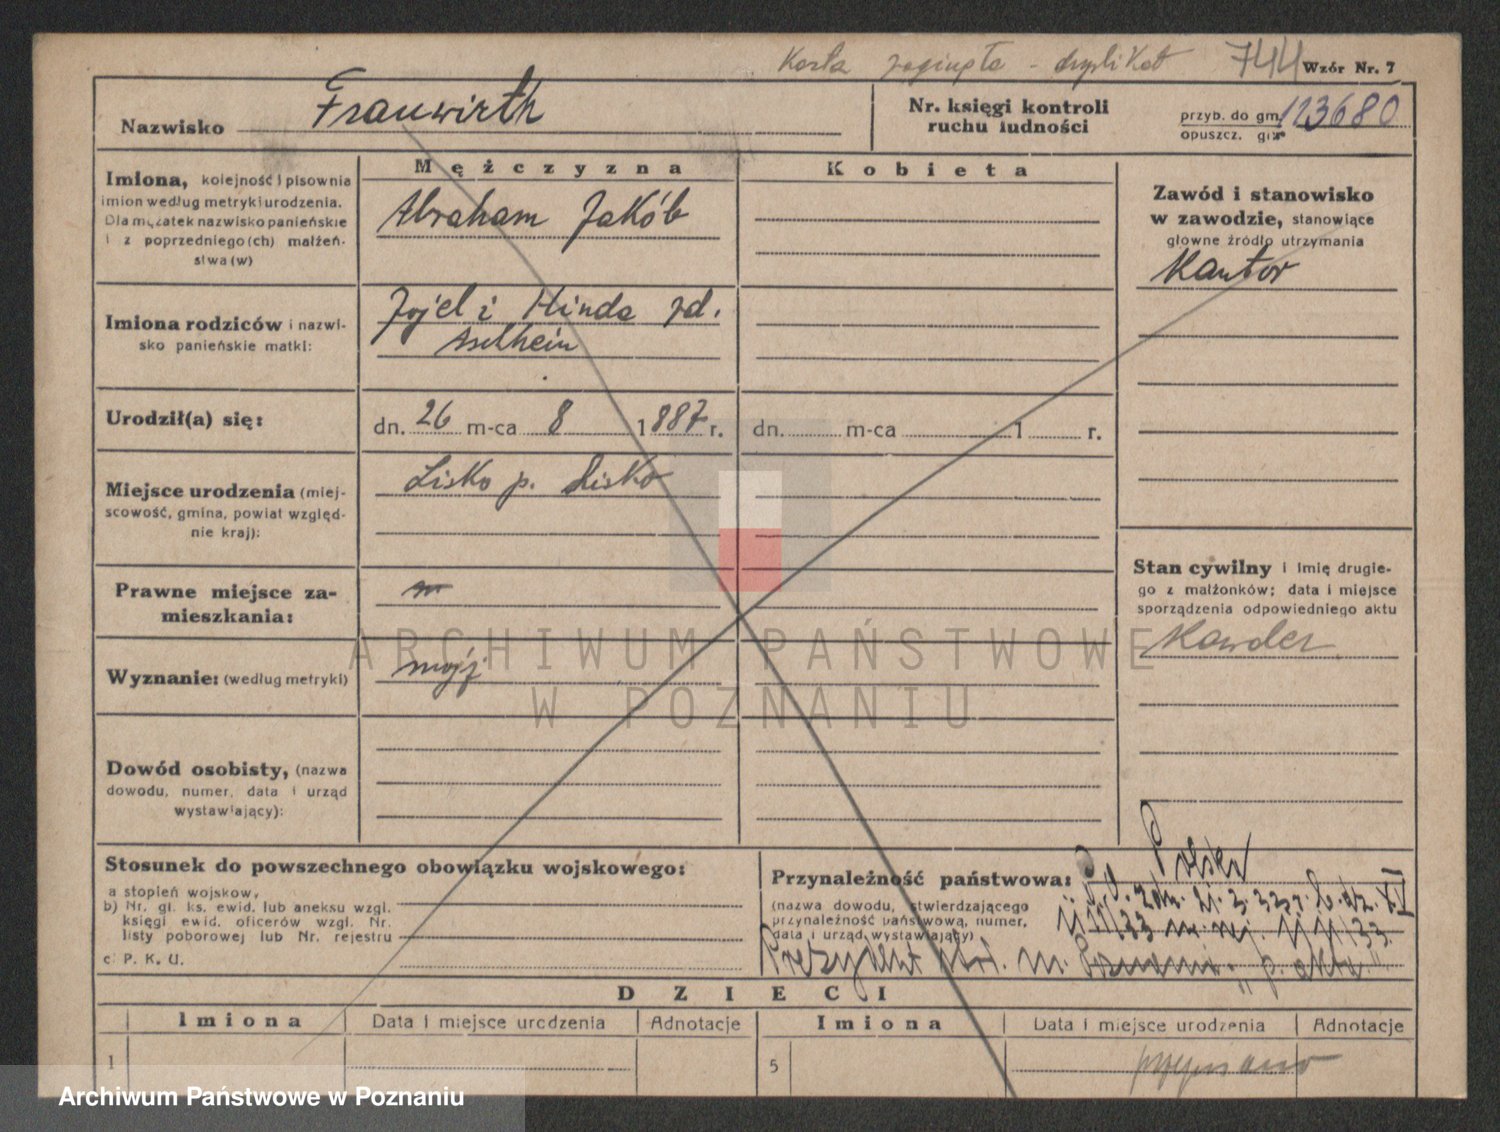 Karta zaginęła - duplikat 744 Wzór Nr. 7
Nazwisko Frauwirth
Nr. księgi kontroli
ruchu ludności
przyb. do gm. 123680
opuszcz. gm.
Mężczyzna
Kobieta
Imiona, kolejność i pisownia
imion według metryki urodzenia.
Dla mężatek nazwisko panieńskie
i z poprzedniego(ch) małżeń-
stwa(w)
Abraham Jakób
Zawód i stanowisko
w zawodzie, stanowiące
główne źródło utrzymania
Kantor
Imiona rodziców i nazwi-
sko panieńskie matki:
Jojel i Hinda zd.
Urodził(a) się:
dn. 26 m-ca 8 1887 r.
dn. m-ca 1 r.
Miejsce urodzenia (miej-
scowość, gmina, powiat względ-
nie kraj):
Lisko p. Lisko
Stan cywilny i imię drugie-
go z małżonków; data i miejsce
sporządzenia odpowiedniego aktu
Prawne miejsce za-
mieszkania:
Wyznanie: (według metryki)
mojż
Dowód osobisty, (nazwa
dowodu, numer, data i urząd
wystawiający):
ARCHIWUM PAŃSTWOWE
W POZNANIU
Stosunek do powszechnego obowiązku wojskowego:
a stopień wojskow,
b) Nr. gł. ks. ewid. lub aneksu wzgl.
księgi ewid. oficerów wzgl. Nr.
listy poborowej lub Nr. rejestru
c) P. K. U.
Przynależność państwowa: Polska
(nazwa dowodu, stwierdzającego
przynależność państwową, numer,
data i urząd wystawiający)
Prezydent stoł. m. Poznania p. akta
DZIECI
Imiona Data i miejsce urodzenia Adnotacje
Imiona Data i miejsce urodzenia Adnotacje
1
5
przepisano
Archiwum Państwowe w Poznaniu